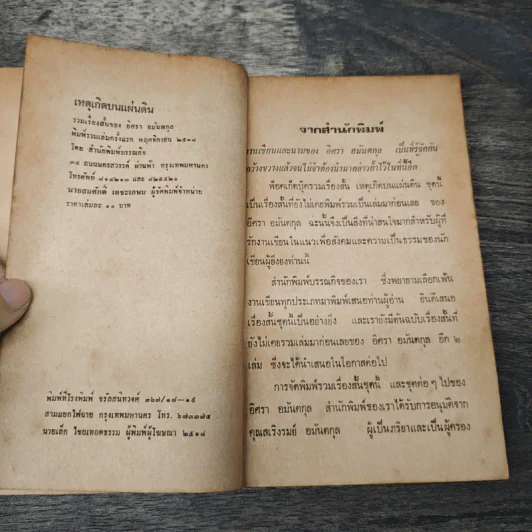 เหตุเกิดบนแผ่นดิน
รวมเรื่องสั้นของ อิศรา อมันตกุล
พิมพ์รวมเล่มครั้งแรก พฤศจิกายน ๒๕๑๘
โดย สำนักพิมพ์บรรณกิจ
๓๔ ถนนนครสวรรค์ ผ่านฟ้า กรุงเทพมหานคร
โทรศัพท์ ๘๑๔๒๑๓ และ ๘๒๕๕๒๐
นายสมศักดิ์ เตชะเกษม ผู้จัดพิมพ์จำหน่าย
ราคาเล่มละ ๑๐ บาท
พิมพ์ที่โรงพิมพ์ จรัลสนิทวงศ์ ๓๖๗/๑๘—๑๙
สามแยกไฟฉาย กรุงเทพมหานคร โทร. ๖๗๓๓๗๔
นายเล็ก ไชยเทอดธรรม ผู้พิมพ์ผู้โฆษณา ๒๕๑๘
จากสำนักพิมพ์
งานเขียนและนามของ อิศรา อมันตกุล เป็นที่รู้จักกัน
กว้างขวางแล้วจนไม่จำต้องนำมากล่าวย้ำไว้ในที่นี้อีก
พ็อคเก็ตบุ๊ครวมเรื่องสั้น เหตุเกิดบนแผ่นดิน ชุดนี้
เป็นเรื่องสั้นที่ยังไม่เคยพิมพ์รวมเป็นเล่มมาก่อนเลย ของ
อิศรา อมันตกุล ฉะนั้นจึงเป็นสิ่งที่น่าสนใจมากสำหรับผู้ที่
รักงานเขียนในแนวเพื่อสังคมและความเป็นธรรมของนัก
เขียนผู้ยิ่งยงท่านนี้
สำนักพิมพ์บรรณกิจของเรา ซึ่งพยายามเลือกเฟ้น
งานเขียนทุกประเภทมาพิมพ์เสนอท่านผู้อ่าน ยินดีเสนอ
เรื่องสั้นชุดนี้เป็นอย่างยิ่ง และเรายังมีต้นฉบับเรื่องสั้นที่
ยังไม่เคยรวมเล่มมาก่อนเลยของ อิศรา อมันตกุล อีก ๒
เล่ม ซึ่งจะได้นำเสนอในโอกาสต่อไป
การจัดพิมพ์รวมเรื่องสั้นชุดนี้ และชุดต่อ ๆ ไปของ
อิศรา อมันตกุล สำนักพิมพ์ของเราได้รับการอนุมัติจาก
คุณสเริงรมย์ อมันตกุล ผู้เป็นภริยาและเป็นผู้ครอง